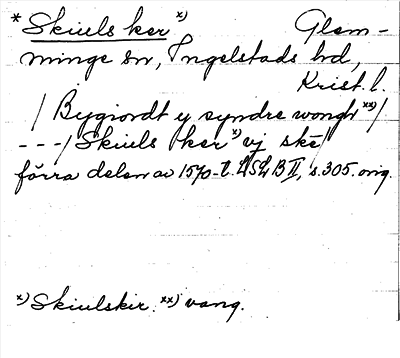 * Skiuls ker x) Glem-
minge sn, Ingelstads hd,
Krist. l.
/ Bygiordt y syndre wongh xx)/
---/ Skiuls ker x) vj skē/
förra delen av 1570-t. LSLB II, s. 305. orig.
x) Skiulskir. xx) vang.